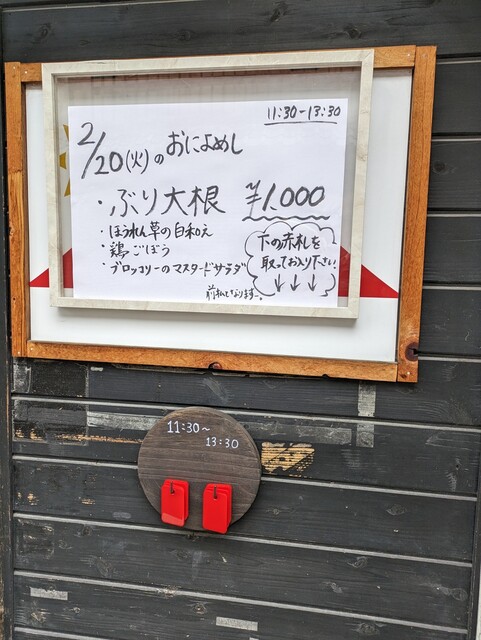 11:30-13:30
2/20(火)のおによめし
・ぶり大根 ¥1.000
・ほうれん草の白和え
・鶏ごぼう
・ブロッコリーのマスタードサラダ
下の赤札を
取ってお入り下さい
↓↓↓
前払となります。
11:30〜
13:30